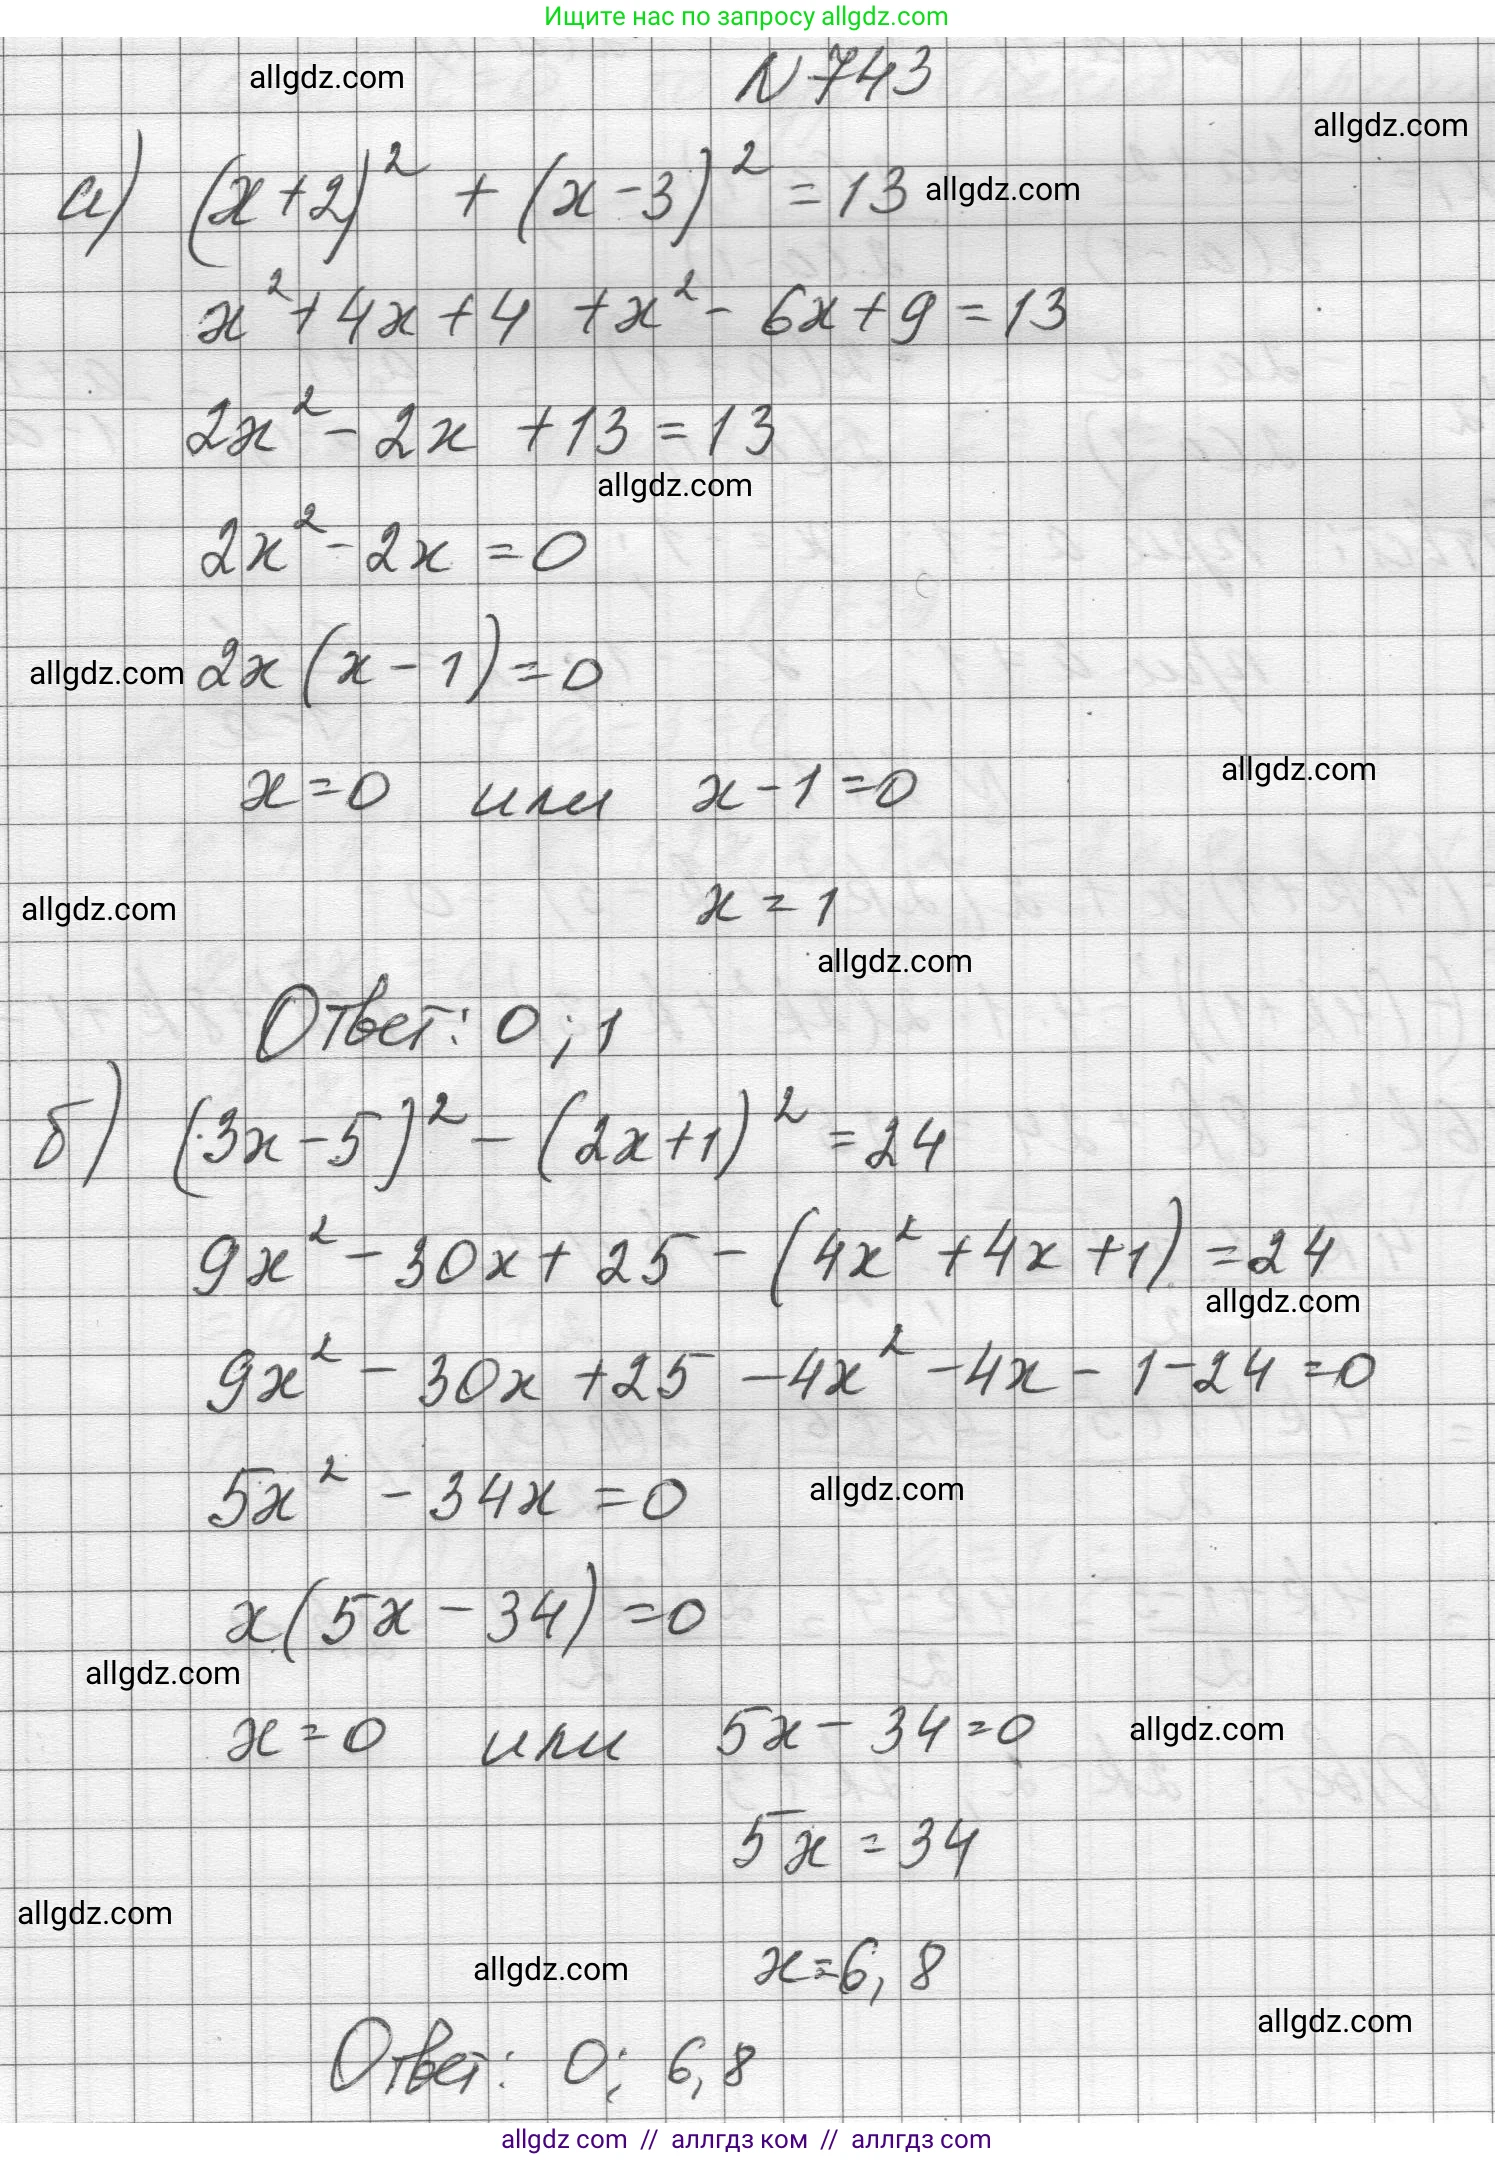 Ищите нас по запросу allgdz.com
N 743
allgdz.com
allgdz.com
а) (x+2)² + (x-3)² = 13
allgdz.com
x² + 4x + 4 + x² - 6x + 9 = 13
2x² - 2x + 13 = 13
allgdz.com
2x² - 2x = 0
allgdz.com
2x (x - 1) = 0
x = 0 или x - 1 = 0
allgdz.com
allgdz.com
x = 1
allgdz.com
Ответ: 0 ; 1
б) (3x - 5)² - (2x+1)² = 24
9x² - 30x + 25 - (4x² + 4x + 1) = 24
allgdz.com
9x² - 30x + 25 - 4x² - 4x - 1 - 24 = 0
5x² - 34x = 0
allgdz.com
x (5x - 34) = 0
allgdz.com
x = 0 или 5x - 34 = 0
allgdz.com
5x = 34
allgdz.com
allgdz.com
x = 6,8
allgdz.com
Ответ: 0; 6,8
allgdz com // аллгдз ком // аллгдз com